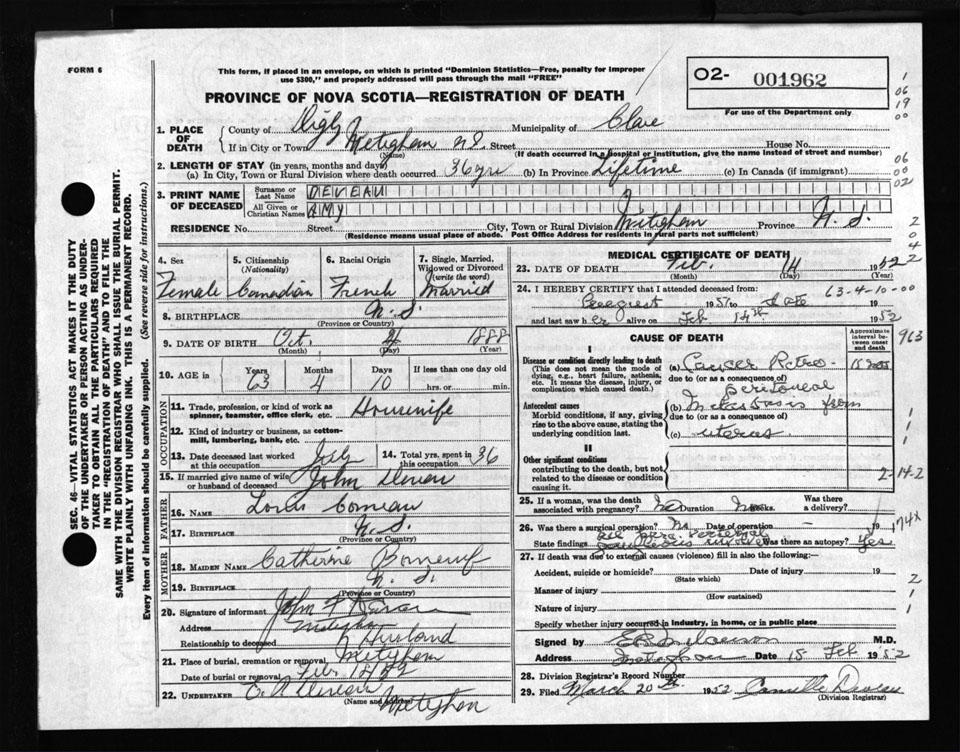 FORM 6
This form, if placed in an envelope, on which is printed "Dominion Statistics—Free, penalty for improper
use $300," and properly addressed will pass through the mail "FREE"
O2- 001962
For use of the Department only
PROVINCE OF NOVA SCOTIA—REGISTRATION OF DEATH
1. PLACE OF DEATH
County of Digby Municipality of Clare
If in City or Town Meteghan N.S. Street House No.
(Name) (If death occurred in a hospital or institution, give the name instead of street and number)
2. LENGTH OF STAY (in years, months and days)
(a) In City, Town or Rural Division where death occurred 36 yrs (b) In Province Lifetime (c) In Canada (if immigrant)
3. PRINT NAME OF DECEASED
Surname or Last Name DEVEAU
All Given or Christian Names AMY
RESIDENCE No. Street City, Town or Rural Division Meteghan Province N. S.
(Residence means usual place of abode. Post Office Address for residents in rural parts not sufficient)
SEC. 46—VITAL STATISTICS ACT MAKES IT THE DUTY
OF THE UNDERTAKER OR PERSON ACTING AS UNDER-
TAKER TO OBTAIN ALL THE PARTICULARS REQUIRED
IN THE "REGISTRATION OF DEATH" AND TO FILE THE
SAME WITH THE DIVISION REGISTRAR WHO SHALL ISSUE THE BURIAL PERMIT.
WRITE PLAINLY WITH UNFADING INK. THIS IS A PERMANENT RECORD.
Every item of information should be carefully supplied. (See reverse side for instructions.)
4. Sex 5. Citizenship (Nationality) 6. Racial Origin 7. Single, Married, Widowed or Divorced (write the word)
Female Canadian French Married
8. BIRTHPLACE N. S.
(Province or Country)
9. DATE OF BIRTH Oct. 4 1888
(Month) (Day) (Year)
10. AGE in Years Months Days If less than one day old
63 4 10 hrs. or min.
OCCUPATION
11. Trade, profession, or kind of work as
spinner, teamster, office clerk, etc. Housewife
12. Kind of industry or business, as cotton-
mill, lumbering, bank, etc.
13. Date deceased last worked
at this occupation
14. Total yrs. spent in
this occupation 36
15. If married give name of wife
or husband of deceased John Deveau
FATHER
16. NAME Comeau
17. BIRTHPLACE N. S.
(Province or Country)
MOTHER
18. MAIDEN NAME Catherine
19. BIRTHPLACE N. S.
(Province or Country)
20. Signature of informant John F Deveau
Address Meteghan
Relationship to deceased Husband
21. Place of burial, cremation or removal Meteghan
Date of burial or removal Feb.
22. UNDERTAKER Deveau
(Name and address)
Meteghan
MEDICAL CERTIFICATE OF DEATH
23. DATE OF DEATH Feb. 14 1952
(Month) (Day)
24. I HEREBY CERTIFY that I attended deceased from:
1951 to date 19
and last saw her alive on Feb 14th 1952
63-4-10-00
CAUSE OF DEATH
Approximate interval between onset and death
I
Disease or condition directly leading to death
(This does not mean the mode of
dying, e.g., heart failure, asthenia,
etc. It means the disease, injury, or
complication which caused death.)
(a) Cancer Retro-
due to (or as a consequence of)
peritoneal
Antecedent causes
Morbid conditions, if any, giving
rise to the above cause, stating the
underlying condition last.
(b) Metastasis from
due to (or as a consequence of)
(c) uterus
II
Other significant conditions
contributing to the death, but not
related to the disease or condition
causing it.
2-14-2
25. If a woman, was the death
associated with pregnancy? No Duration Weeks. Was there a delivery?
26. Was there a surgical operation? No Date of operation 19
State findings Was there an autopsy? Yes
174x
27. If death was due to external causes (violence) fill in also the following:—
Accident, suicide or homicide? Date of injury 19
(State which)
Manner of injury
(How sustained)
Nature of injury
Specify whether injury occurred in industry, in home, or in public place
Signed by M.D.
Address Meteghan Date 15 Feb 1952
28. Division Registrar's Record Number
29. Filed March 20th 1952 Camille Deveau
(Division Registrar)